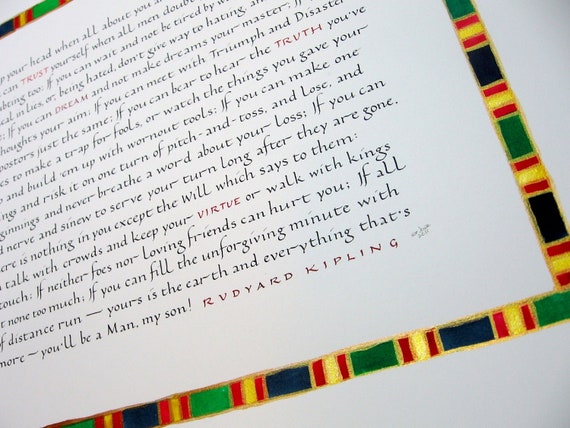 your head when all about you
can TRUST yourself when all men doubt
ting too: If you can wait and not be tired by
in lies, or, being hated, don't give way to hating, and
If you can DREAM and not make dreams your master; If
thoughts your aim: If you can meet with Triumph and Disaster
postors just the same: If you can bear to hear the TRUTH you've
to make a trap for fools, or watch the things you gave your
and build 'em up with wornout tools: If you can make one
and risk it on one turn of pitch-and-toss, and Lose, and
ginnings and never breathe a word about your Loss: If you can
nerve and sinew to serve your turn long after they are gone,
ere is nothing in you except the Will which says to them:
talk with crowds and keep your VIRTUE or walk with kings
touch: If neither foes nor loving friends can hurt you: If all
none too much: If you can fill the unforgiving minute with
of distance run — yours is the earth and everything that's
more — you'll be a Man, my son! RVDYARD KIPLING